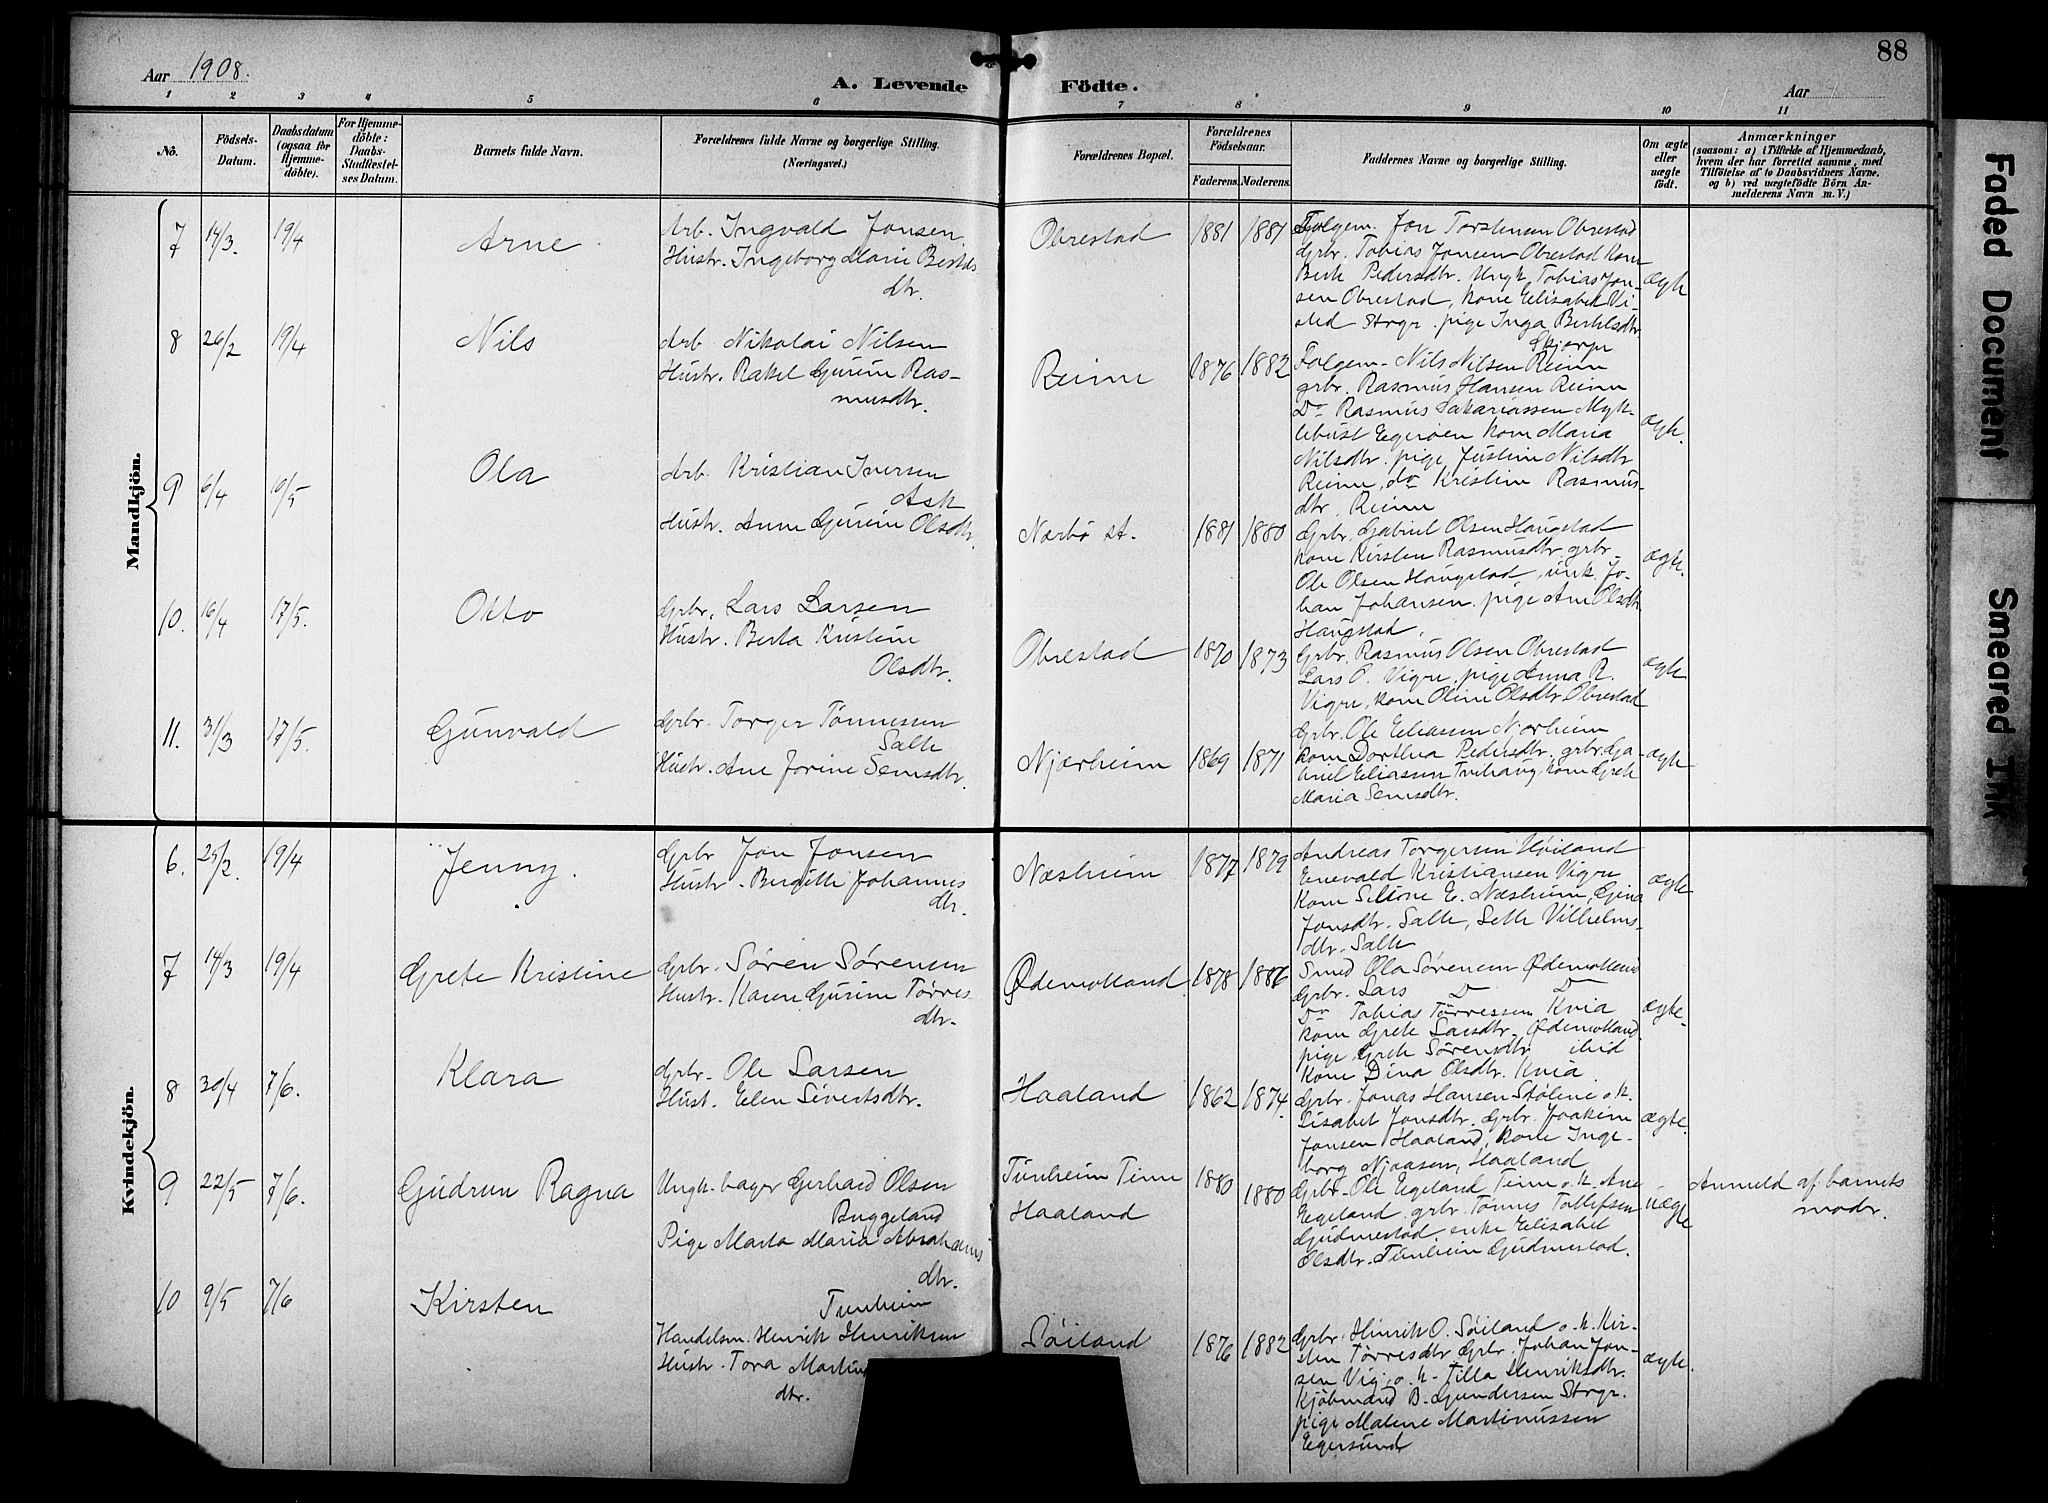 88
Aar 1908.
A. Levende Födte.
Aar
1 2 3 4 5 6 7 8 9 10 11
No.
Födsels-Datum.
Daabsdatum (ogsaa for Hjemmedöbte).
For Hjemmedöbte: Daabs-Stadfæstelses Datum.
Barnets fulde Navn.
Forældrenes fulde Navne og borgerlige Stilling. (Næringsvei.)
Forældrenes Bopæl.
Forældrenes Födselsaar.
Faderens. Moderens.
Faddernes Navne og borgerlige Stilling.
Om ægte eller uægte födt.
Anmærkninger
(saasom: a) i Tilfælde af Hjemmedaab,
hvem der har forrettet samme, med
Tilföielse af to Daabsvidners Navne,
og b) ved uægtefödte Börn An-
melderens Navn m. V.)
Mandkjön.
7 14/3. 19/4 Arne
Arb. Ingvald Jonsen.
Hustr. Ingeborg Marie Bertels
dtr.
Obrestad 1881 1881
Folgem. Jon Torstensen Obrestad
Grbr. Tobias Jonsen Obrestad Kone
Berte Pedersdtr. Ungk. Tobias Jon-
sen Obrestad, kone Elisabet Vi-
sted Stvgr. pige Inga Bertelsdtr.
Skjerpe
ægte
8 26/2 19/4 Nils
Arb. Nikolai Nilsen
Hustr. Rakel Gurine Ras-
musdtr.
Reime 1876 1882
Folgem. Nils Nilsen Reime
grbr. Rasmus Hansen Reime
Do Rasmus Sakariassen Myk-
lebust Egerøen kone Maria
Nilsdtr. pige Justine Nilsdtr
Reime, do Kristine Rasmus-
dtr. Reime
ægte.
9 6/4 10/5 Ola
Arb. Kristian Iversen
Ask
Hustr. Anne Gurine Olsdtr.
Nærbø st. 1881 1880
Grbr. Gabriel Olsen Haugstad
kone Kirsten Rasmusdtr. grbr.
Ole Olsen Haugstad, unk. Jo-
han Johansen. pige Ane Olsdtr.
Haugstad.
ægte.
10. 16/4 17/5. Otto
Grbr. Lars Larsen
Hustr. Berta Kristine
Olsdtr.
Obrestad 1870 1873
Grbr. Rasmus Olsen Obrestad
Lars O. Vigre, pige Anna R.
Vigre, kone Oline Olsdtr. Obrestad
ægte
11. 31/3 17/5. Gunvald
Grbr. Torger Tønnessen
Salte
Hustr. Ane Jorine Semsdtr.
Njærheim 1869 1871
Grbr. Ole Eliassen Njærheim
kone Dorthea Pedersdtr. grbr. Ga-
briel Eliassen Tuehaug, kone Grete
Maria Semsdtr.
ægte
Kvindekjön.
6. 25/2. 19/4 Jenny.
Grbr Jon Jonsen
Hustr. Bergitte Johannes
dtr.
Næsheim 1877 1879
Andreas Torgersen Høiland
Enevald Kristiansen Vigre
Kone Selione E. Næsheim, Gina
Jonsdtr. Salte, Sette Vilhelms-
dtr. Salte
ægte
7 14/3 19/4 Grete Kristine
Grbr. Søren Sørensen
Hustr. Karen Gurine Tørres
dtr.
Ødemotland 1878 1886
Smed Ola Sørensen Ødemotland
Grbr. Lars D D
Do Tobias Tørressen Kvia
kone Grete Larsdtr. Ødemotland
pige Grete Sørensdtr. ibid
Kone Dina Olsdtr. Kvia
ægte.
8 30/4 7/6. Klara
Grbr. Ole Larsen
Hust. Elen Sivertsdtr.
Haaland 1862 1874.
Grbr. Jonas Hansen Stølene o.k.
Lisabet Jonsdtr. Grbr. Joakim
Jonsen Haaland, kone Inge-
borg Njaasen, Haaland
ægte.
9 22/5 7/6. Gudrun Ragna
Ungk. bager Gerhard Olsen
Buggeland
Pige Marta Maria Abrahams
dtr.
Tunheim
Tunheim Time 1880
Haaland 1880
Grbr. Ole Egeland Time o.k. Ane
Egeland. grbr. Tønnes Tollefsen
Gudmestad, enke Elisabet
Olsdtr. Tunheim Gudmestad.
uægte
Anmeld af barnets
moder.
10 9/5 7/6 Kirsten
Handelsm. Henrik Henriksen
Hustr. Tora Martin
dtr.
Søiland 1876 1882
Grbr. Hinrik O. Søiland o.k. Kir-
sten Tørresdtr Grbr. Johan Jon-
sen Vig, o.k. Tilla Henriksdtr.
Kjøbmand B. Gundersen Stvgr.
pige Malene Martinussen
Egersund
ægte.
Faded Document
Smeared Ink